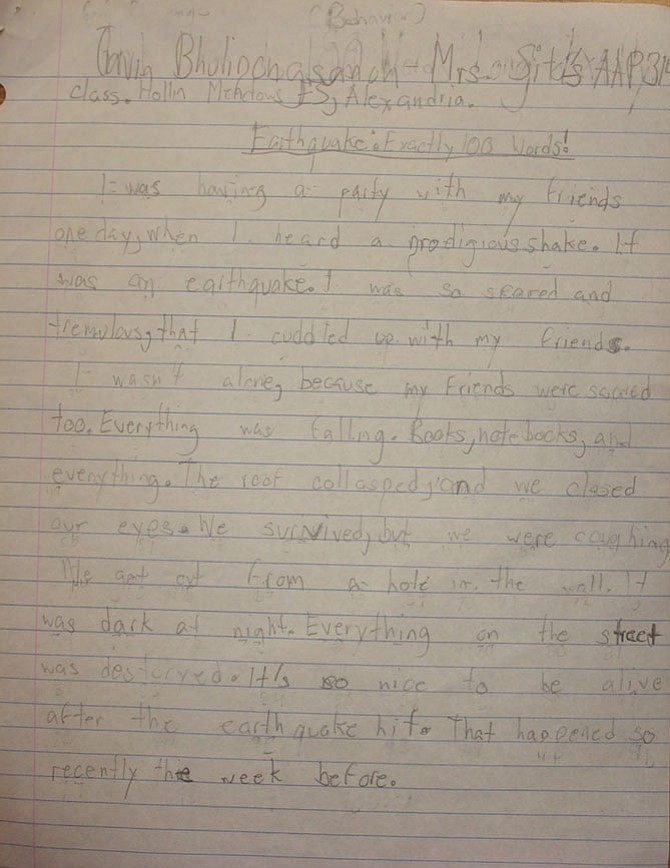 (Behavior)
Gavin Bhulipongsanon Mrs. Sitt's AAP, 314
class. Hollin Mehdows ES, Alexandria.
Earthquake: Exactly 100 Words!
I was having a party with my friends
one day, when I heard a prodigious shake. It
was an earthquake. I was so scared and
tremulous, that I cuddled up with my friends.
I wasn't alone, because my friends were scared
too. Everything was falling. Books, notebooks, and
everything. The roof collasped, and we closed
our eyes. We survived, but we were coughing
We got out from a hole in the wall. It
was dark at night. Everything on the street
was destoryed. It's so nice to be alive
after the earthquake hit. That happened so
recently the week before.